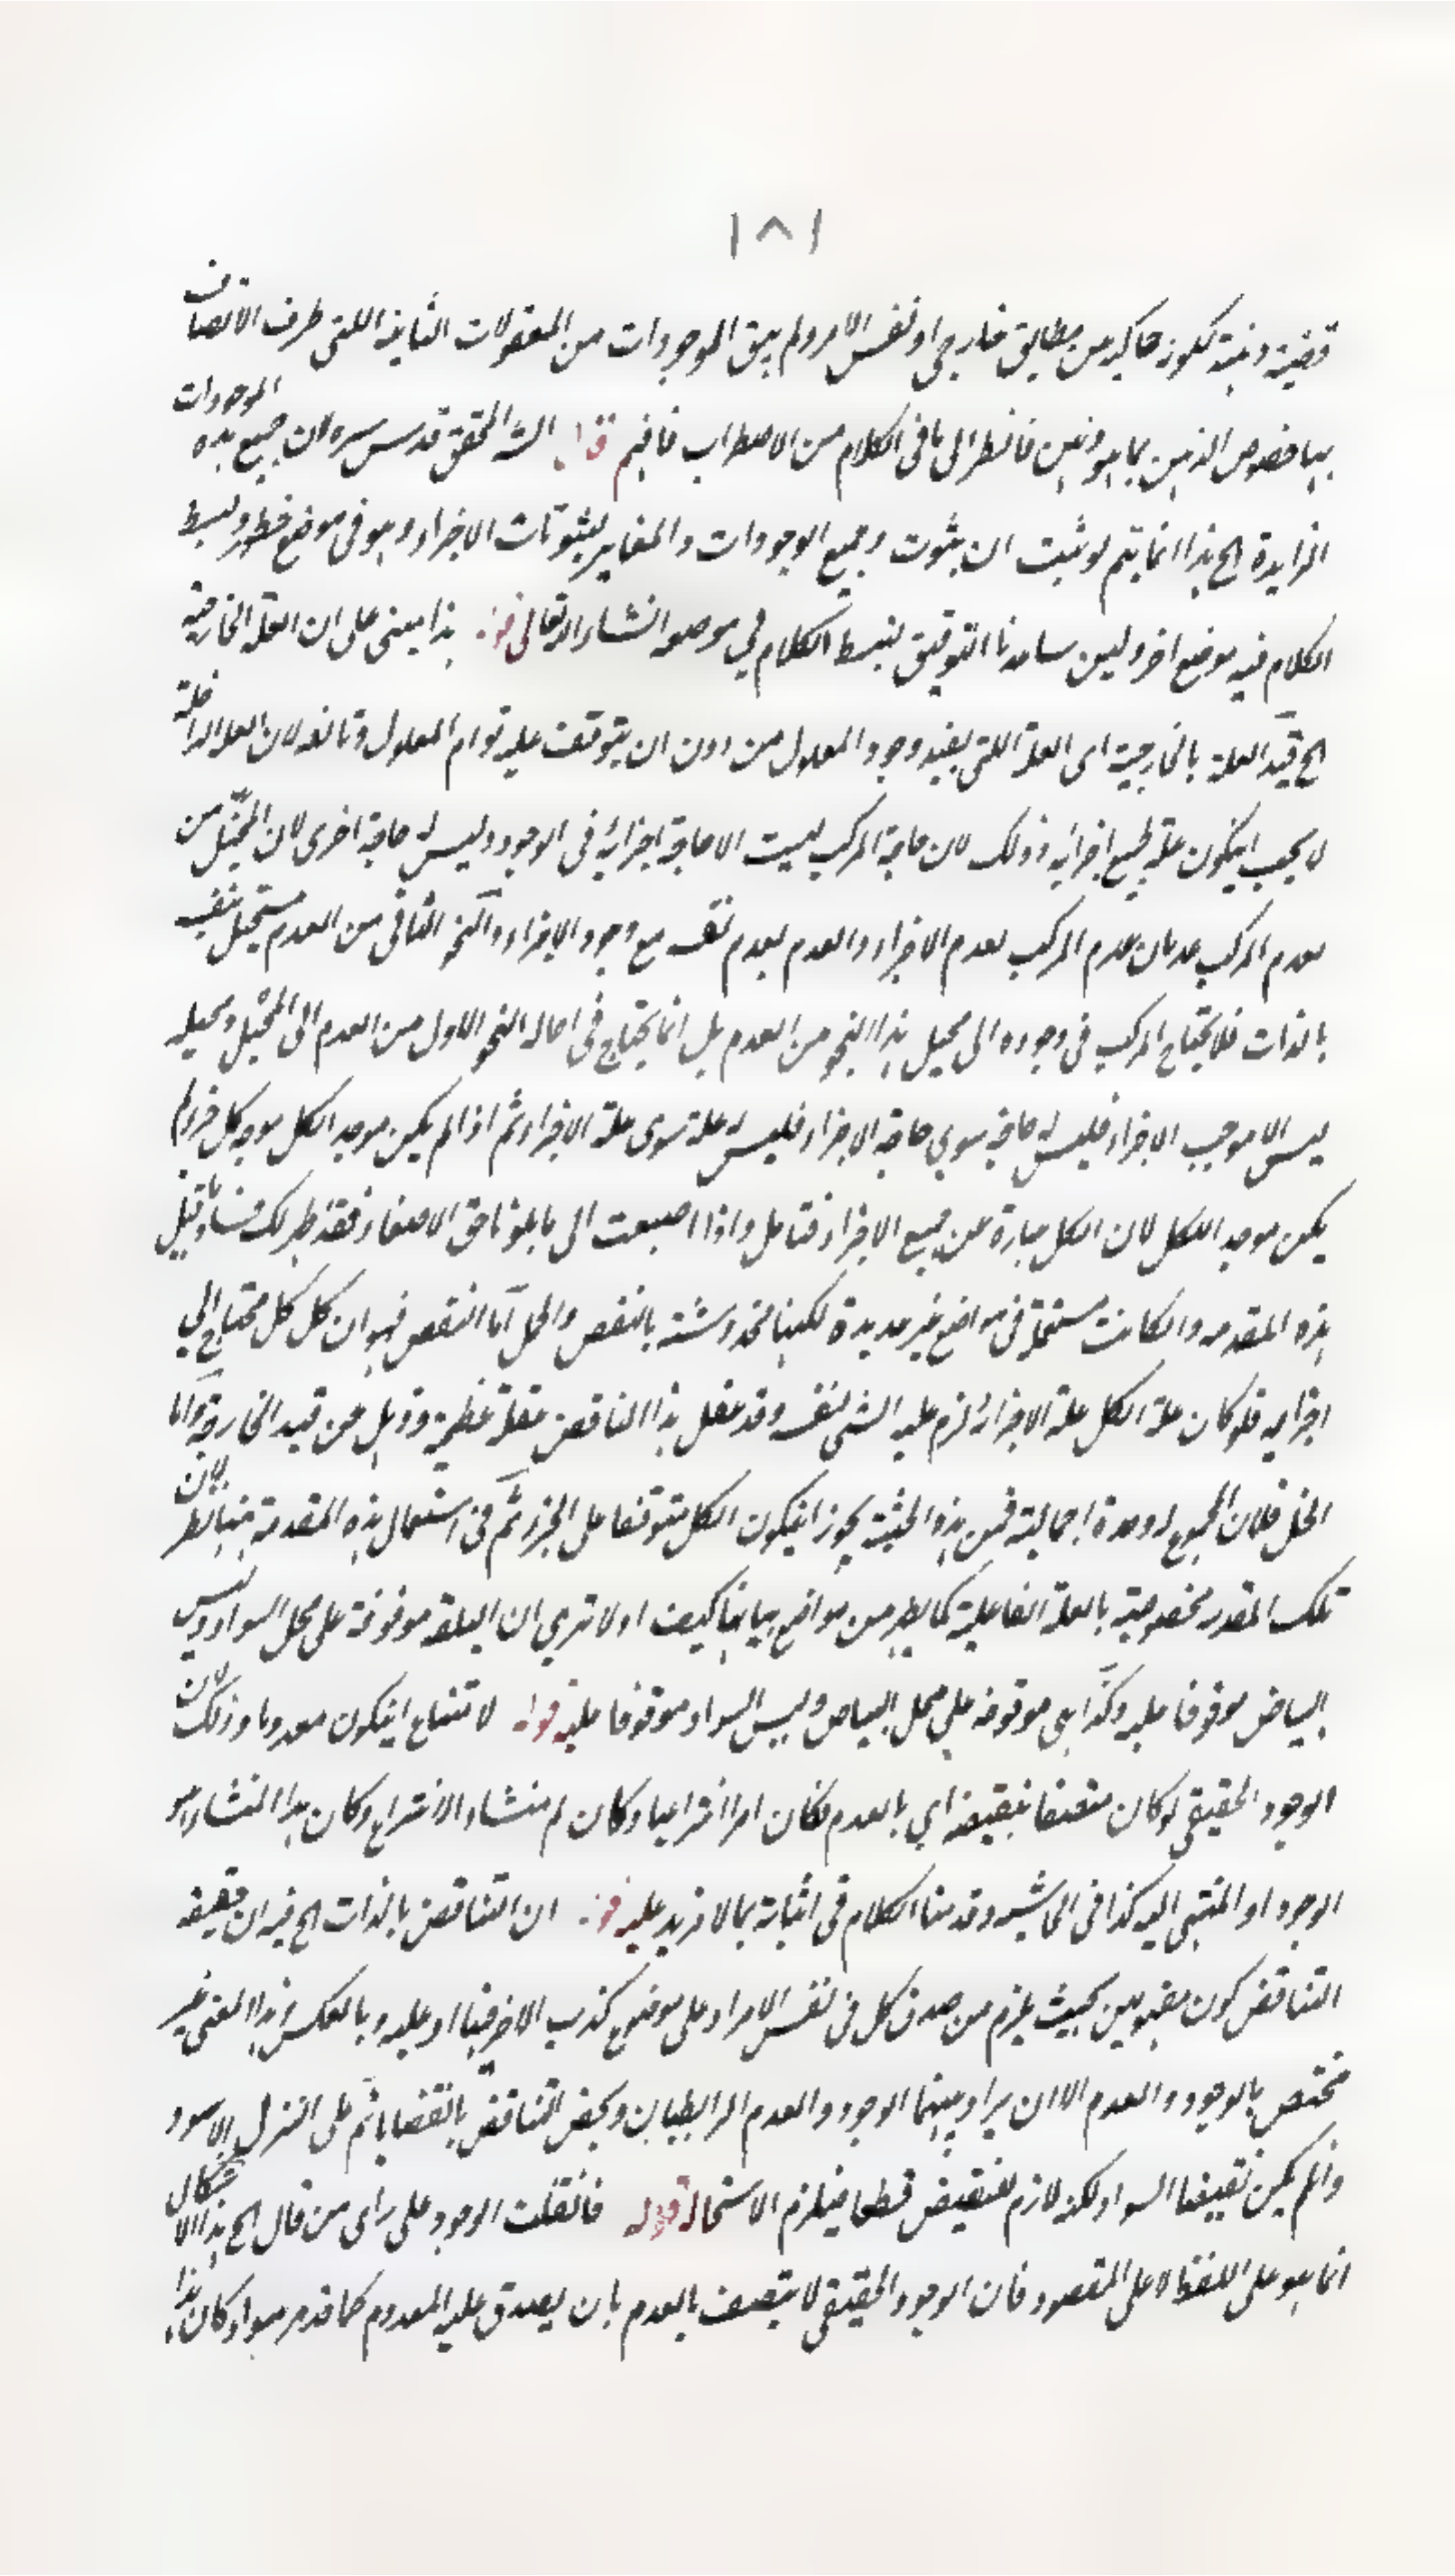 ١٨١
قضية ذهنية لكونه حاكية من مطابق خارجي او نفس الامر ولم يبق الموجودات من المعقولات الثانية اللتى ظرف الاتصاف
بها خصوص الذهن بما هو ذهن فانظر الى ما فى الكلام من الاضطراب فافهم قال الشه المحقق قدس سره لان جميع هذه الموجودات
الزايدة الخ هذا انما يتم لو ثبت ان ثبوت جميع الوجودات والمغاير لثبوتات الاجزاء وهو فى موضع خطر وبسط
الكلام فيه موضع اخر ولين ساعدنا التوفيق لنبسط الكلام في موضعه انشاء الله تعالى قوله هذا مبنى على ان العلة الخارجية
الخ قيد العلة بالخارجية اى العلة اللتى يفيد وجود المعلول من دون ان يتوقف عليه قوام المعلول وتالفه لان العلة الداخلة
لا يجب ان يكون علة لجميع اجزائه وذلك لان حاجة المركب ليست الا حاجة اجزائه فى الوجود وليس له حاجة اخرى لان المحيل من
لعدم المركب عدمان عدم المركب لعدم الاجزاء والعدم بعدم نفسه مع وجود الاجزاء والنحو الثانى من العدم مستحيل بنفسه
بالذات فلا يحتاج المركب فى وجوده الى محيل هذا النحو من العدم بل انما يحتاج فى احالة النحو الاول من العدم الى المحيل ومحيله
ليس الا موجب الاجزاء فليس له حاجة سوى حاجة الاجزاء فليس له علة سوى علة الاجزاء ثم اذا لم يكن موجد الكل موجد كل جزء لم
يكن موجد الكل لان الكل عبارة عن جميع الاجزاء فتامل واذا اصبعت الى ما تلونا حق الاصغاء فقد ظهر لك فساد ما قيل
هذه المقدمة وانكانت مستعملة فى مواضع غير عديدة لكنها مخدوشة بالنقض والحل اما النقض فهو ان كل كل محتاج الى
اجزائه فلو كان علة الكل علة الاجزاء لزم علية الشى لنفسه وقد غفل هذا الناقض غفلة عظيمة وذهل عن قيد الخارجة واما
الحل فلان المجموع له وحدة اجمالية فمن هذه الحيثية يجوز ان يكون الكل متوقفا على الجزء ثم فى استعمال هذه المقدمة مغالطة لان
تلك المقدمة مخصوصة بالعلة الفاعلية كما يظهر من مواضع بيانها كيف اولا ترى ان البلقة موقوفة على محل السواد وليس
البياض موقوفا عليه وكذا هى موقوفة على محل البياض وليس السواد موقوفا عليه قوله لامتناع ان يكون معدوما وذلك لان
الوجود الحقيقى لو كان متصفا بنقيضه اي بالعدم لكان امرا انتزاعيا وكان له منشاء الانتزاع وكان هذا المنشاء هو
الوجود او المنتهى اليه كذا فى الحاشية وقد مننا الكلام فى اثباته بما لا مزيد عليه قوله ان التناقض بالذات الخ فيه ان حقيقة
التناقض كون مفهومين بحيث يلزم من صدق كل فى نفس الامر او على موضوع كذب الاخر فيها او عليه وبالعكس وهذا المعنى غير
مختص بالوجود والعدم الا ان يراد بهما الوجود والعدم الرابطيان ويخص التناقض بالقضايا ثم على التنزل الاسود
وانلم يكن نقيضا السواد لكنه لازم لنقيضه قطعا فيلزم الاستحالة قوله فانقلت الوجود على راى من قال الخ هذا الاشكال
انما هو على اللفظ لا على المقصود فان الوجود الحقيقى لا يتصف بالعدم بان يصدق عليه المعدوم كما قد مر سواء كان هذا